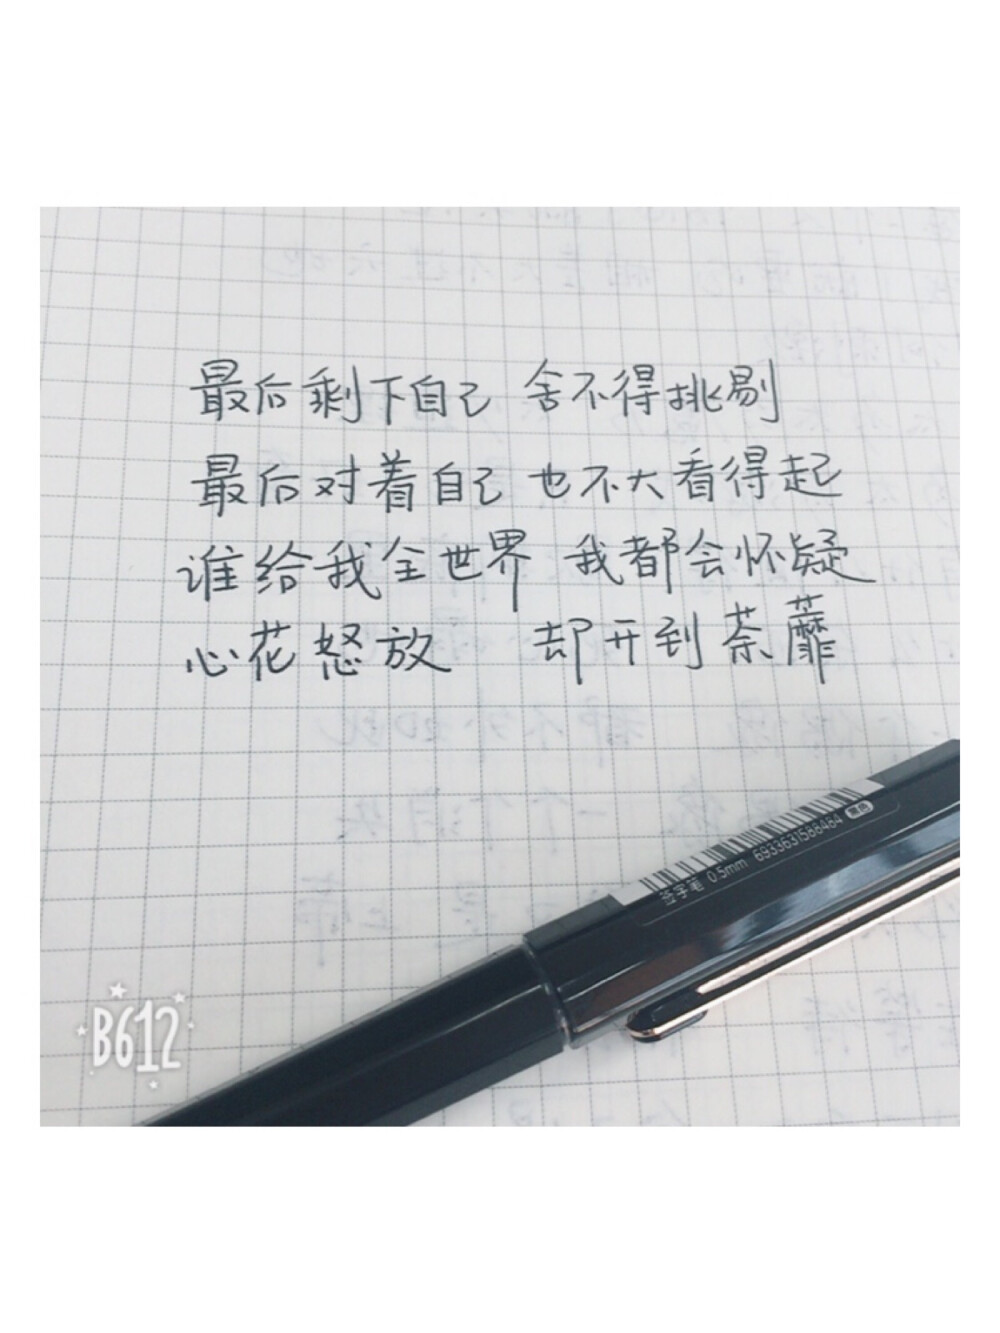 最后剩下自己 舍不得挑剔
最后对着自己 也不大看得起
谁给我全世界 我都会怀疑
心花怒放 却开到荼蘼
签字笔 0.5mm 6933631588484 黑色
B612